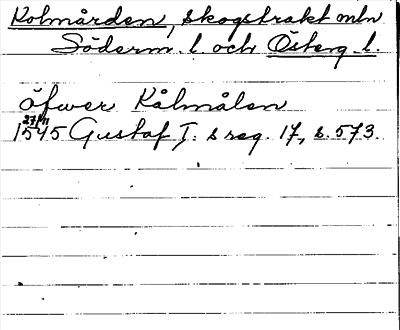 Kolmården, skogstrakt mln
Söderm. l. och Österg. l.
öfwer Kålmålen
27/11
1545 Gustaf I:s reg. 17, s. 573.